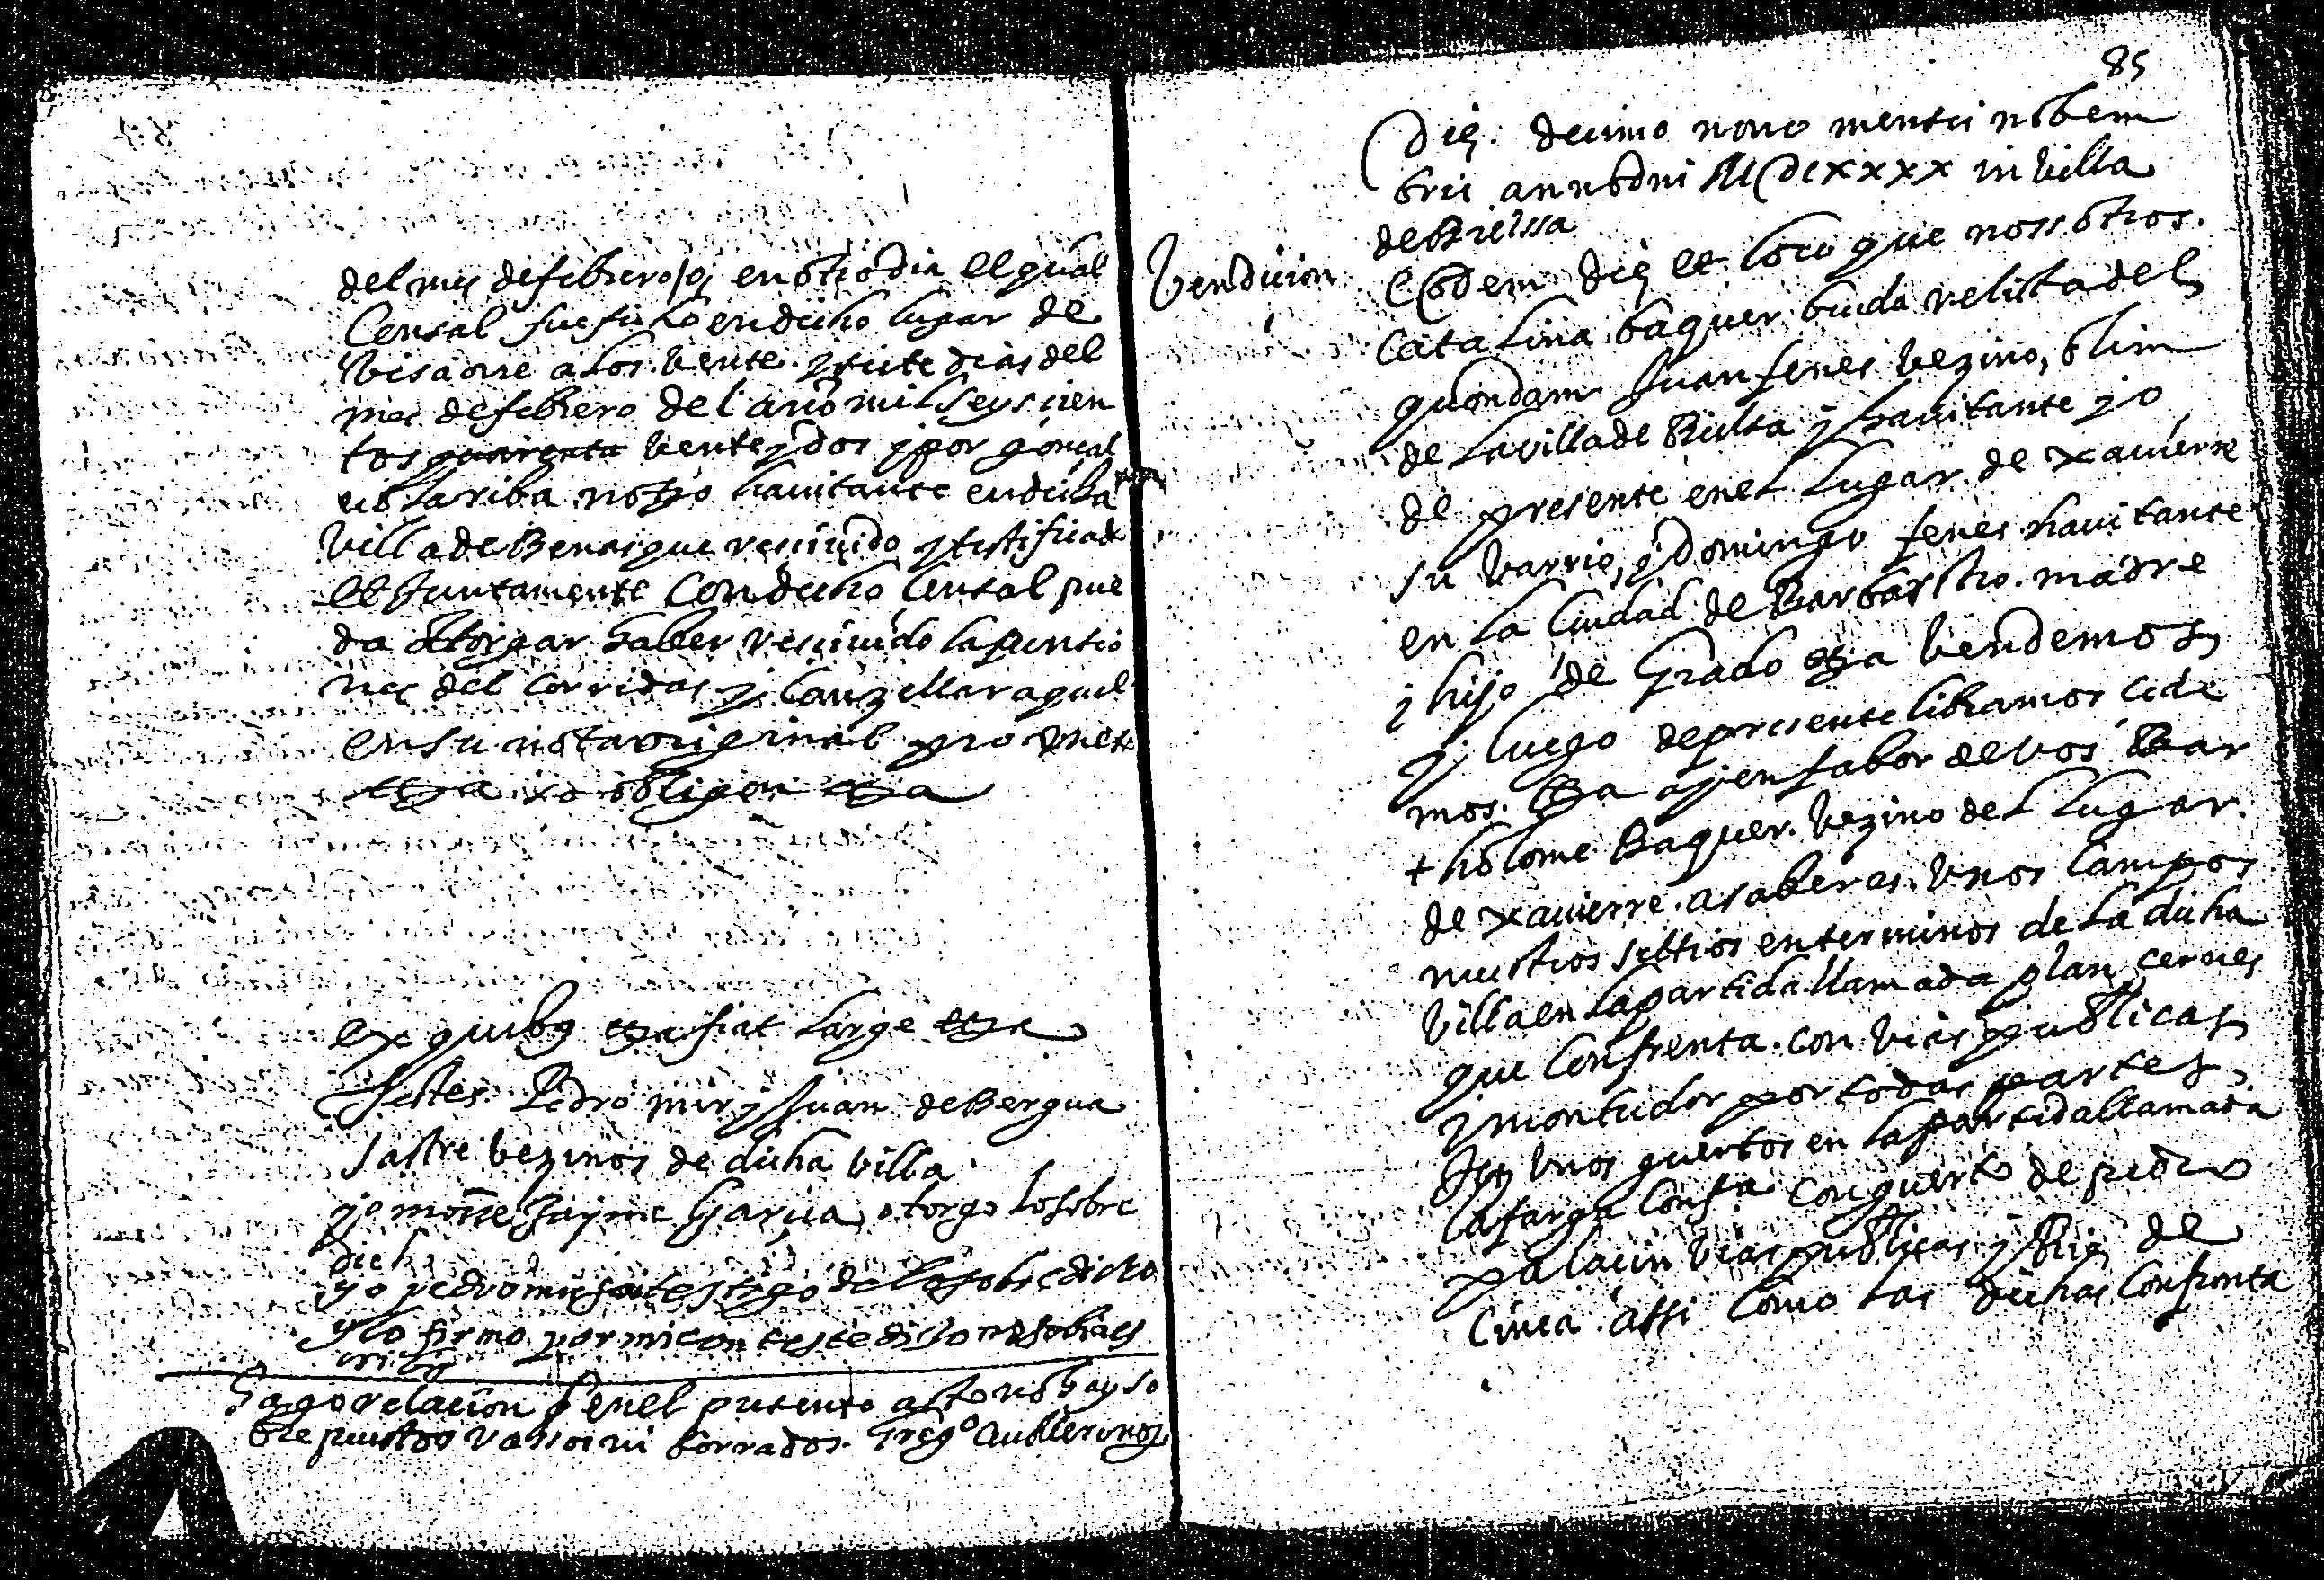 del mes de febrero /o/ en otro dia el qual
Censal fue fecho en dicho lugar de
Visaorre a los vente y siete dias del
mes de febrero del año mil Seys cien
tos quarenta vente y dos y por
riba notro havitante en dicha
Villa de Benasque reciuido y testificad
et Juntamente Con dicho Censal pue
da otorgar haber reciuido las pensio
nes del corridas y Canzellar aquel
en su nota original promet
etza obligan etza
ex quibus etza fiat large etza
Testes Pedro mir y Juan de Bergua
sastre vezinos de dicha villa
yo mosse Jayme Garcia otorgo lo sobre
dich
yo pedro mir soi testigo de lo sobre dicho
y lo firmo por mi con teste dijo no sabia es
cribir
Hago relacion q en el presente acto no hay so
bre puestos rassos ni borrados. Greg.º not
85
Die decimo nono mensis nobem
bris anno dni MDCXXXX in billa
de Bielssa
Vendicion
Eodem die et loco que nossotros
Catalina Baquer biuda relicta del
quondam Juan fenes vezino, olim
de la villa de Bielsa y havitante yo
de presente en el Lugar de xauierre
su varrio, y Domingo fenes havitante
en la Ciudad de Barbastro. madre
y hijo de Grado etza bendemos
y luego de presente libramos cede
mos. etza a y en fabor de vos Bar
tholome Baquer. vezino del Lugar
de xauierre. a saber es. Vnos Campos
nuestros sittios en terminos de la dicha
Villa en la partida llamada plan cernes
que Confrenta. con vias publicas
y montudor por todas partes
Itt Vnos guertos en la partida llamada
la farga Confta con guerto de pedro
palacin vias publicas y Rio de
Cinca. assi Como las dichas Confronta